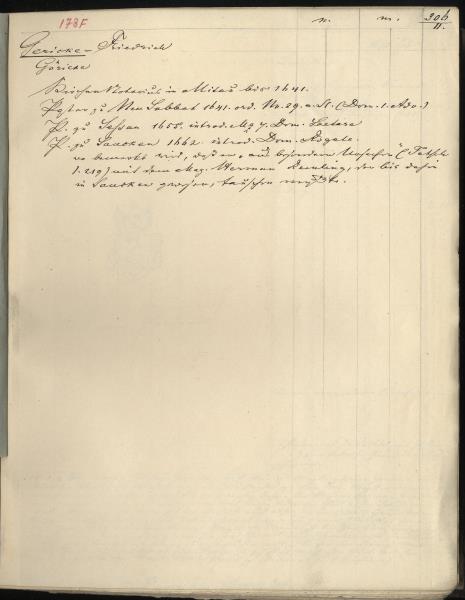 178F
n. m. 306
11.
Gericke Friedrich
Göricke
Kirchen Notarius in Mitau bis 1641.
Pastor zu Neu Sabbat 1641. ord. (Dom. 1. Adv.)
P. zu Sessau 1655. introd. Dom. Laetare
P. zu Saucken 1662. introd. Dom. Rogate.
wo bemerkt wird, aus besondern Ursachen" (Tetsch
1. 219) mit dem Mag. Herman der bis dahin
in Saucken gewesen, tauschen